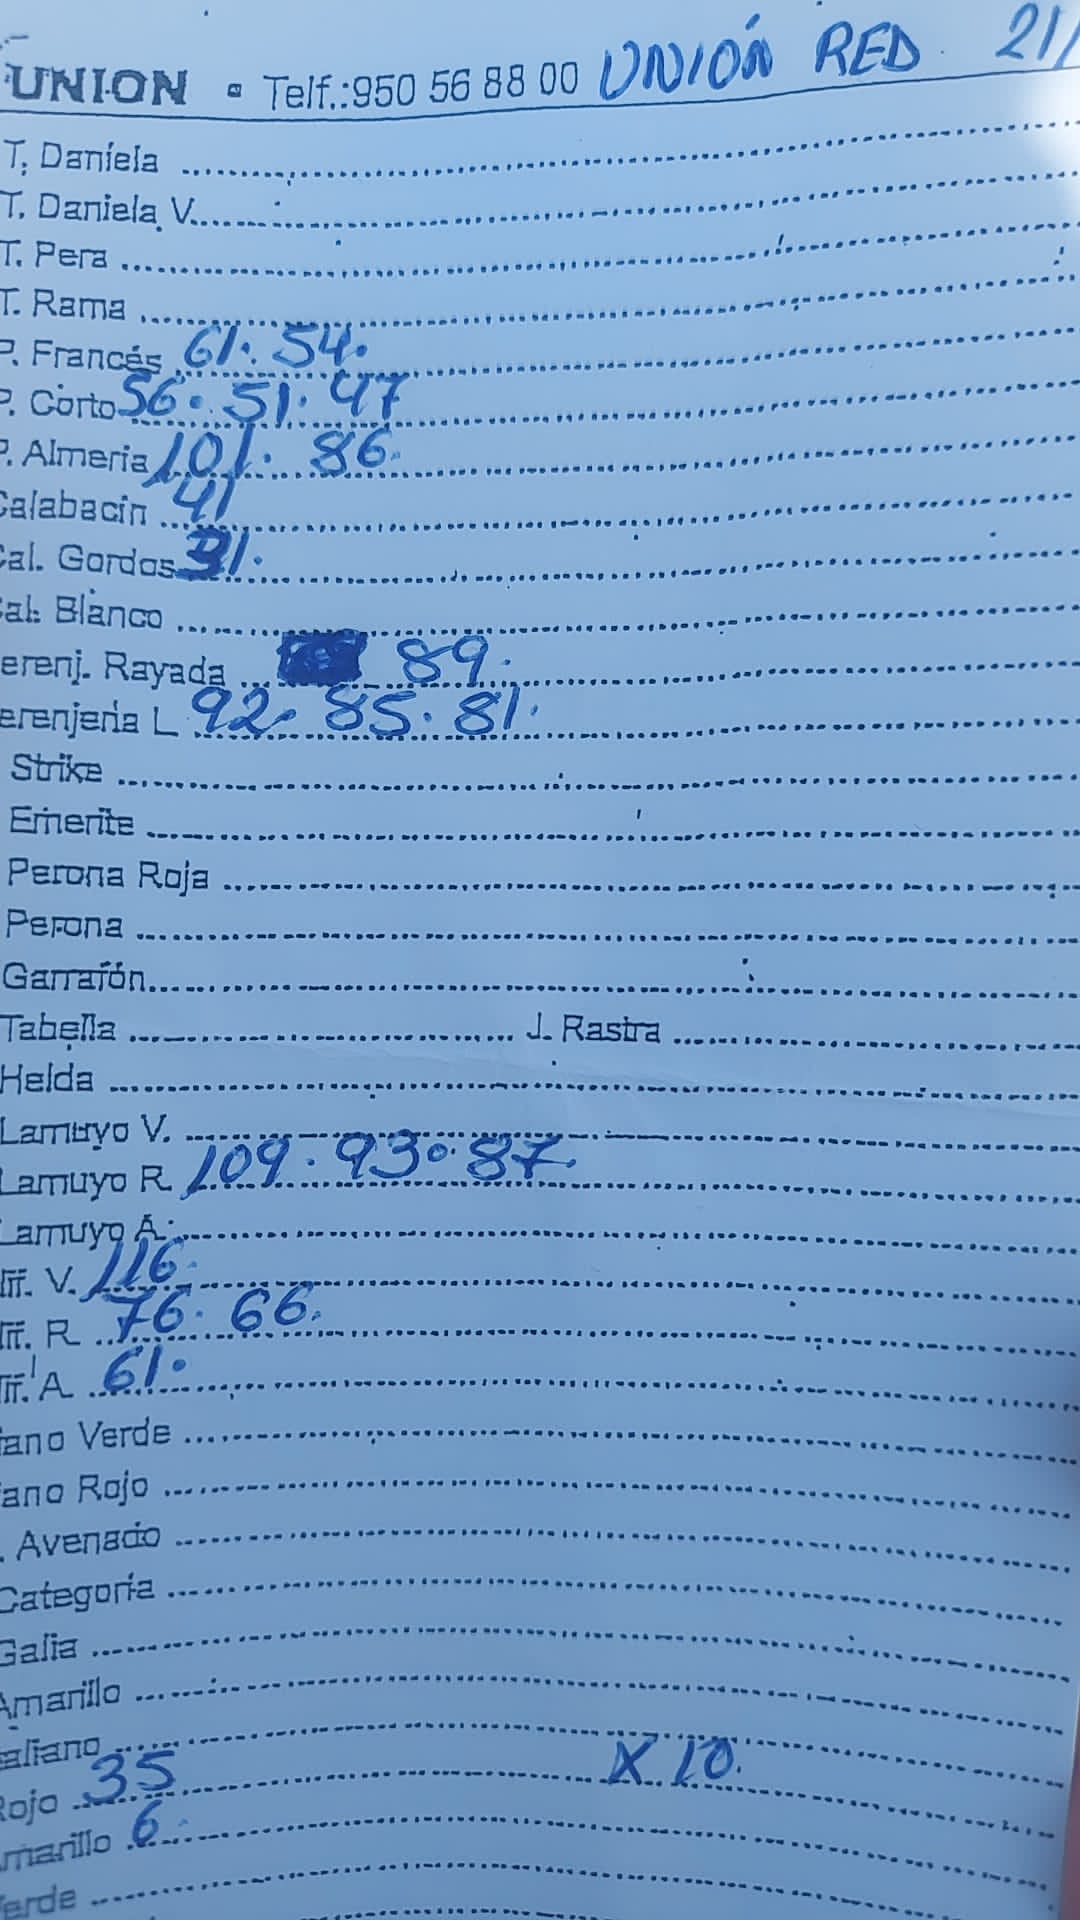 UNION ▫ Telf.:950 56 88 00 UNIÓN RED. 21/
T. Daniela
T. Daniela V.
T. Pera
T. Rama
P. Francés 61. 54.
P. Corto 56. 51. 47
P. Almeria 101. 86.
Calabacin 41
Cal. Gordos 31.
Cal. Blanco
erenj. Rayada 89.
erenjena L 92. 85. 81.
Strike
Emerite
Perona Roja
Perona
Garrafón
Tabella J. Rastra
Helda
Lamuyo V.
Lamuyo R. 109. 93. 87.
Lamuyo A.
V. 116.
R 76. 66.
A 61.
iano Verde
iano Rojo
. Avenado
Categoría
Galia
Amarillo
aliano
Rojo 35 X 10.
marillo 6.
erde